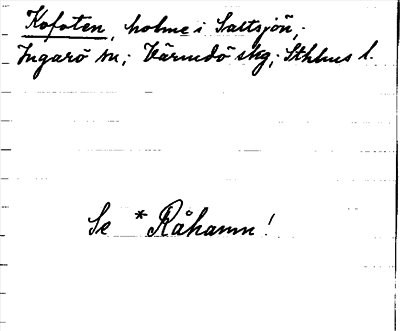 Kofoten, holme i Saltsjön,
Ingarö sn; Värmdö skg; Sthlms l.
Se *Råhamn!